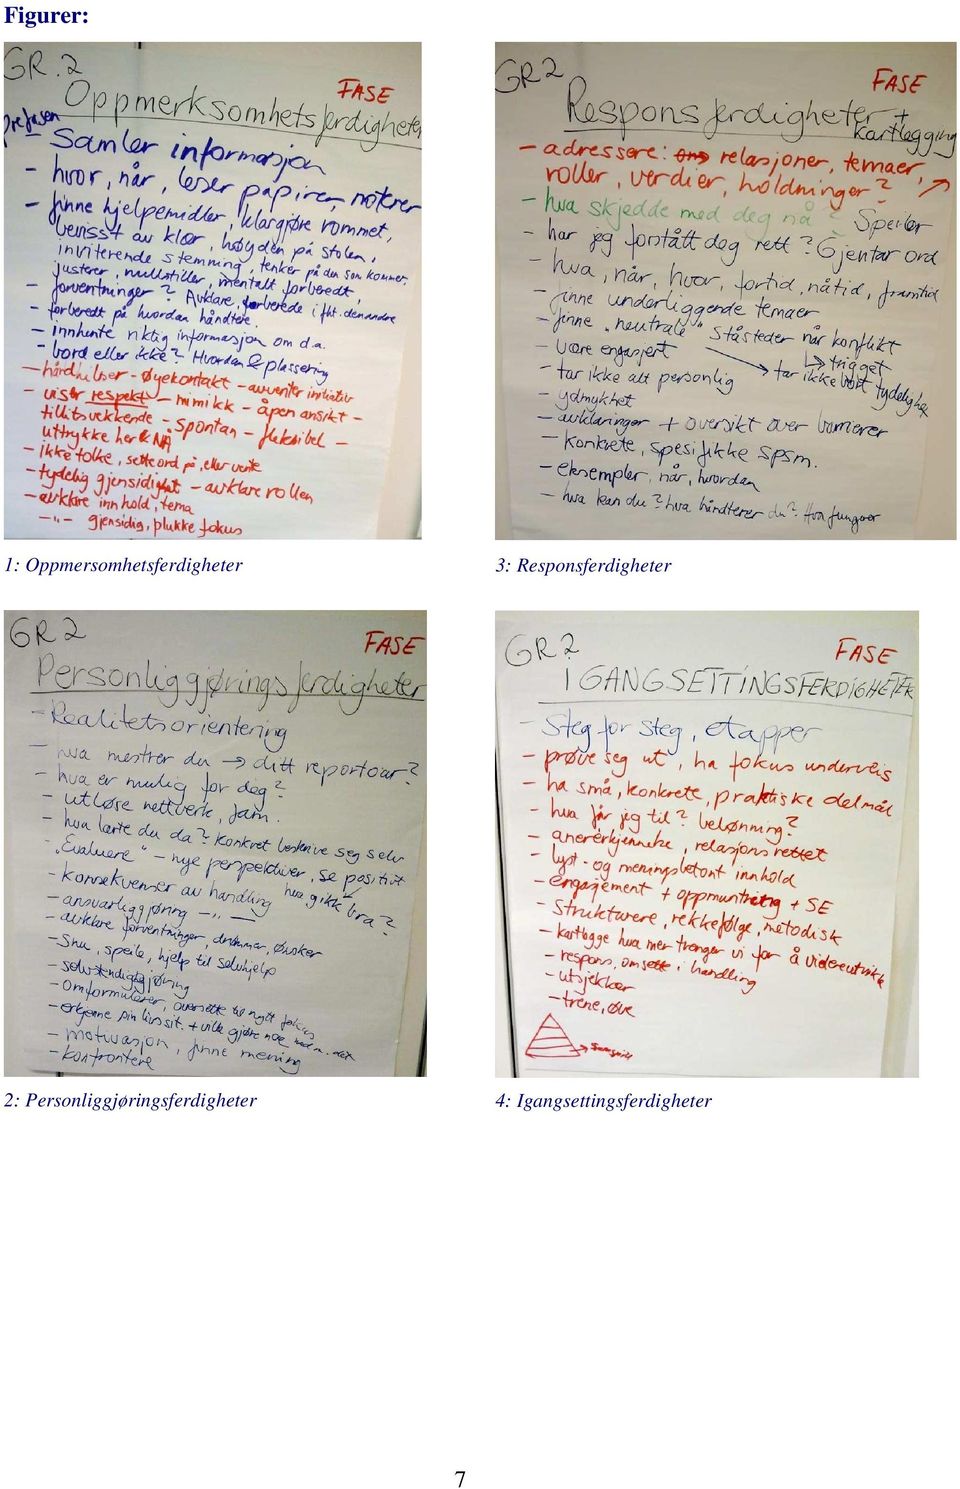 Figurer:
GR. 2
FASE
Oppmerksomhetsferdigheter
prefasen
- Samler informasjon
- hvor, når, leser papirer, noterer
- finne hjelpemidler, klargjøre rommet,
bevisst av klær, høyden på stolen,
inviterende stemning, tenker på den som kommer.
justerer, nullstiller, mentalt forberedt,
- forventninger? Avklare, forberede i fht. den andre
- forberedt på hvordan håndtere.
- innhente riktig informasjon om d.a.
- bord eller ikke? Hvordan & plassering
- håndhilser - øyekontakt - avventer initiativ
- viser respekt - mimikk - åpen ansikt -
tillitsvekkende - spontan - fleksibel -
uttrykke her & NÅ
- ikke tolke, sette ord på, eller vente
- tydelig gjensidighet - avklare rollen
- avklare innhold, tema
- "- gjensidig, plukke fokus
1: Oppmersomhetsferdigheter
GR2
FASE
Responsferdigheter +
kartlegging
- adressere: relasjoner, temaer,
roller, verdier, holdninger?
- hva skjedde med deg nå? Speiler
- har jeg forstått deg rett? Gjentar ord
- hva, når, hvor, fortid, nåtid, framtid
- finne underliggende temaer
- finne "neutrale" ståsteder når konflikt
- være engasjert
→ trigget
- tar ikke alt personlig → tar ikke bort tydelighet
- ydmykhet
- avklaringer + oversikt over barrierer
- Konkrete, spesifikke spsm.
- eksempler, når, hvordan
- hva kan du? hva håndterer du? Hva fungerer
3: Responsferdigheter
GR 2
FASE
Personliggjøringsferdigheter
- Realitetsorientering
- hva mestrer du → ditt reportoar?
- hva er mulig for deg?
- utløse nettverk, fam.
- hva lærte du da? Konkret beskrive seg selv
- "Evaluere" - nye perspektiver, se positivt
- konsekvenser av handling hva gikk bra?
- ansvarliggjøring -"-
- avklare forventninger, drømmer, ønsker
- Snu, speile, hjelp til selvhjelp
- selvstendiggjøring
- omformulerer, oversette til nytt fokus
- erkjenne sin livssit. + ville gjøre noe med det
- motivasjon, finne mening
- konfrontere
2: Personliggjøringsferdigheter
GR 2
FASE
IGANGSETTINGSFERDIGHETER
- Steg for steg, etapper
- prøve seg ut, ha fokus underveis
- ha små, konkrete, praktiske delmål
- hva får jeg til? belønning?
- anerkjennelse, relasjonsrettet
- lyst- og meningsbetont innhold
- engasjement + oppmuntring + SE
- Strukturere, rekkefølge, metodisk
- kartlegge hva mer trenger vi for å videreutvikle
- respons, omsette i handling
- utsjekker
- trene, øve
→ Samspill
4: Igangsettingsferdigheter
7